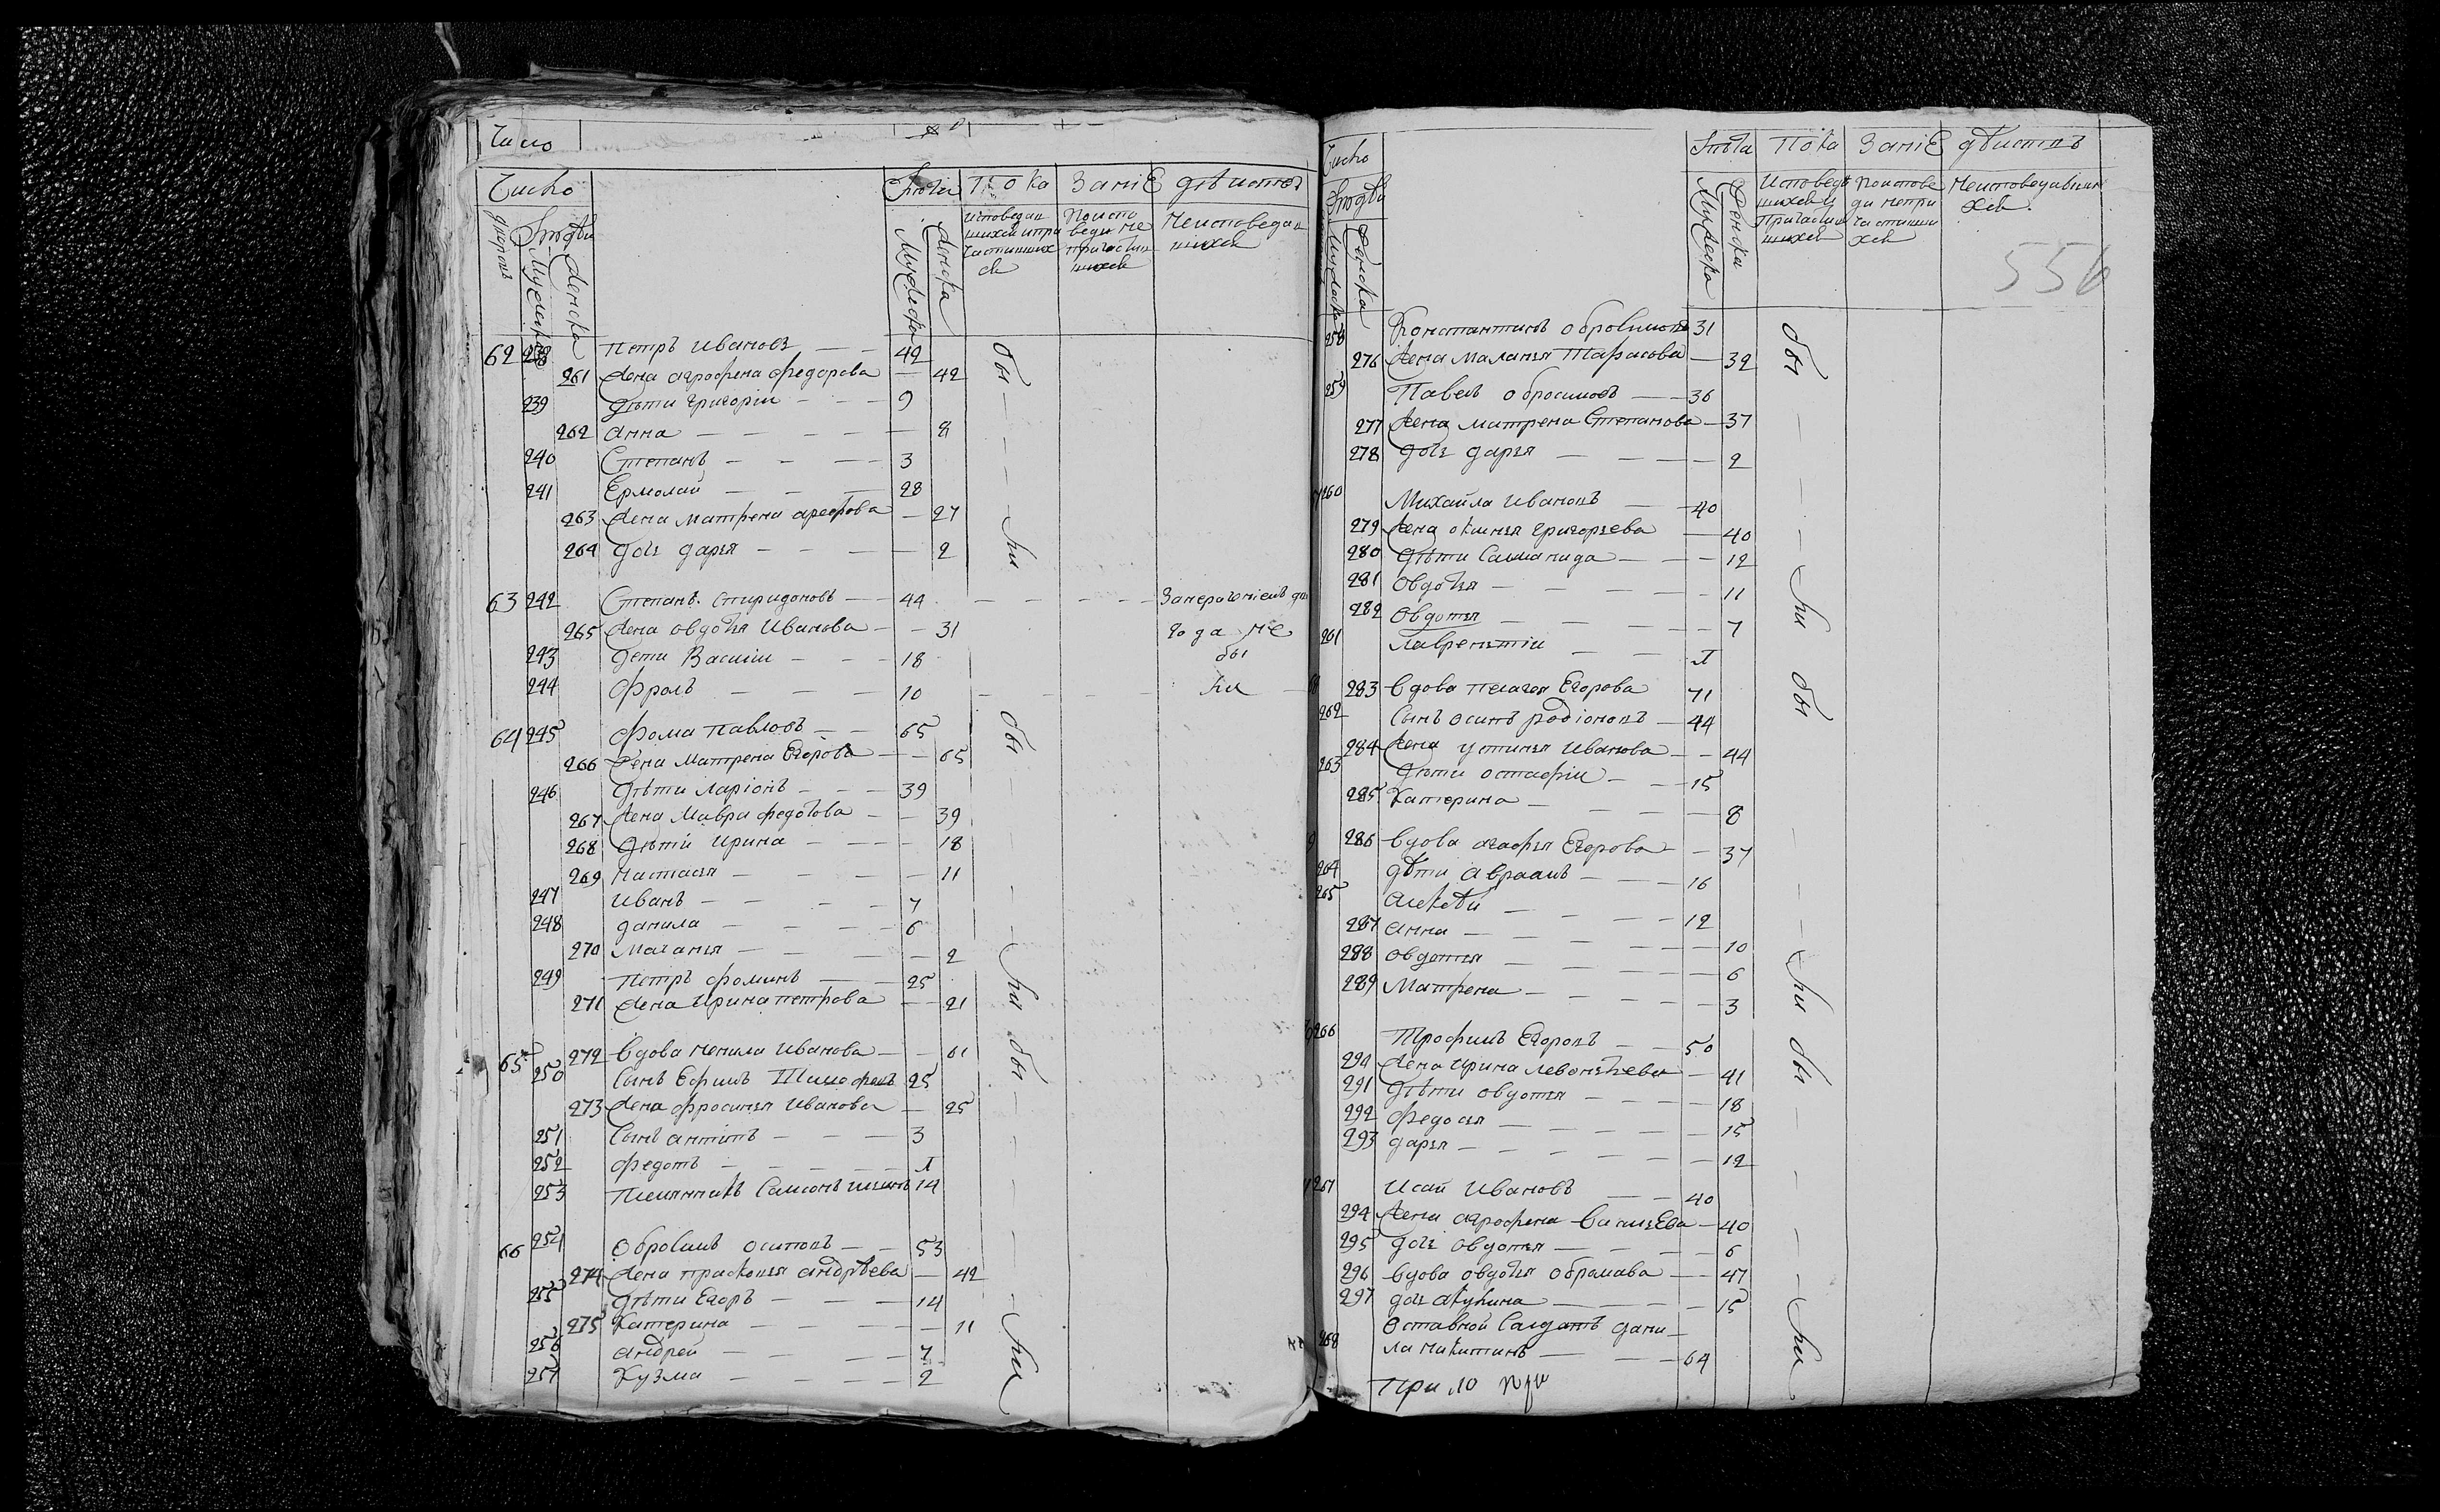 Число
Число Люди Лета Пока Заніе действъ
дворовъ Мужеска Женска Мужеска Женска
исповедав
шихся и при
частивших
ся
По испо
веди не
причастив
шихся
Неисповедав
шихся
62 238 Петръ Ивановъ 42 бы
261 Жена Агрофена Федорова 42
239 Дѣти Григоріи 9
262 Анна 8
240 Степанъ 3
241 Ермолаи 28
263 Жена Матрена Арефова 27
264 дочь дарья 2 ли
63 242 Степанъ Спиридоновъ 44
265 Жена Овдотья Иванова 31 года не
243 Дети Васили 18 бы
244 Фролъ 10 ли
64 245 Фома Павловъ 65 бы
266 Жена Матрена Егорова 65
246 Дѣти Ларіонъ 39
267 Жена Мавра Федотова 39
268 Дѣти Ирина 18
269 Настасья 11
247 Иванъ 7
248 данила 6
270 Маланья 2
249 Петръ Фоминъ 25
271 Жена Ирина Петрова 21 ли
65 272 Вдова Ненила Иванова 61 бы
250 Сынъ Ефимъ Тимофеевъ 25
273 Жена Фросинья Иванова 25
251 Сынъ Антипъ 3
252 Федотъ
253 Племянникъ Самсонъ 14
66 254 Обросимъ Осиповъ 53
274 Жена Прасковья Андрѣева 42
255 Дѣти Егоръ 14
275 Катерина 11
256 Андреи 7
257 Кузма 2 ли
Число Лета Пока Заніе дѣйствъ
Людѣи
Мужеска Женска Мужеска Женска
Исповедав
шихся и
Причастив
шихся
По испове
ди не при
частивши
хся
Неисповедавши
хся
556
258 Константинъ Обросимовъ 31 бы
276 Жена Маланья Тарасова 32
259 Павелъ Обросимовъ 36
277 Жена Матрена Степанова 37
278 дочь дарья 2
260 Михайла Ивановъ 40
279 Жена Окинья Григорьева 40
280 Дѣти Саломанида 12
281 Овдотья 11
282 Овдотья 7 ли
261 Лаврентіи
283 Вдова Пелагея Егорова 71 бы
262 Сынъ Осипъ Родіоновъ 44
284 Жена Устинья Иванова 44
263 Дѣти Остафіи 15
285 Катерина 8
286 Вдова Агафья Егорова 37
264 Дѣти Авраамъ 16
265 Алексѣи 12
287 Анна 10
288 Овдотья 6
289 Матрена 3 ли
266 Трофимъ Егоровъ 50 бы
290 Жена Ирина Левонтьева 41
291 Дѣти Овдотья 18
292 Федосья 15
293 дарья 12
267 Исаи Ивановъ 40
294 Жена Агрофена Васильева 40
295 дочь Овдотья 6
296 Вдова Овдотья Обрамава 47
297 дочь Акулина 15
Оставной Салдатъ Дани
268 ла Никитинъ 64 ли